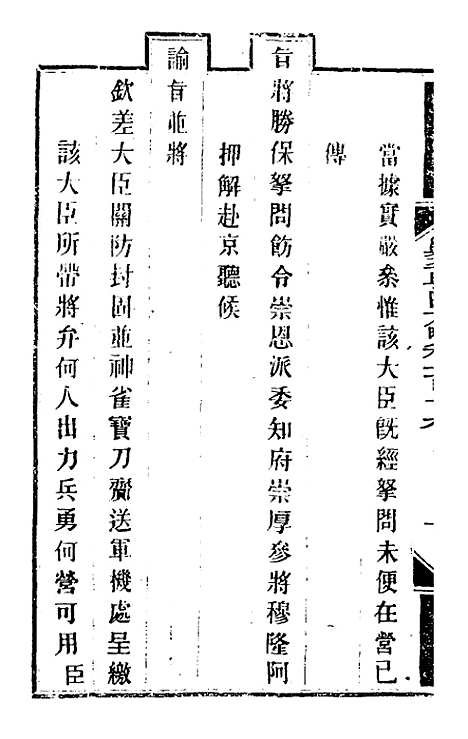 當據實嚴叅惟該大臣旣經拏問未便在營已
傳
旨將勝保拏問飭令崇恩派委知府崇厚叅將穆隆阿
押解赴京聽候
諭旨並將
欽差大臣關防封固並神雀寶刀齎送軍機處呈繳
該大臣所帶將弁何人出力兵勇何營可用臣